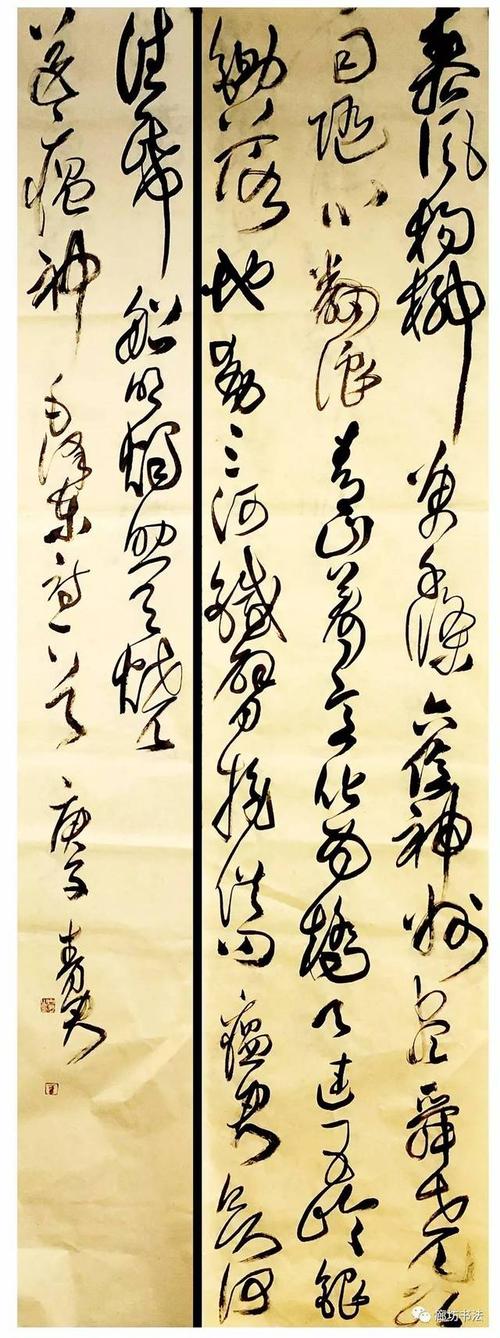 春风杨柳萬千條六億神州尽舜尧红
雨随心翻浪青山着意化为橋天连五岭银
锄落地动三河鐵臂摇借问瘟君欲何
往纸船明燭照天烧
送瘟神 毛泽东诗一首 庚子
廊坊书法